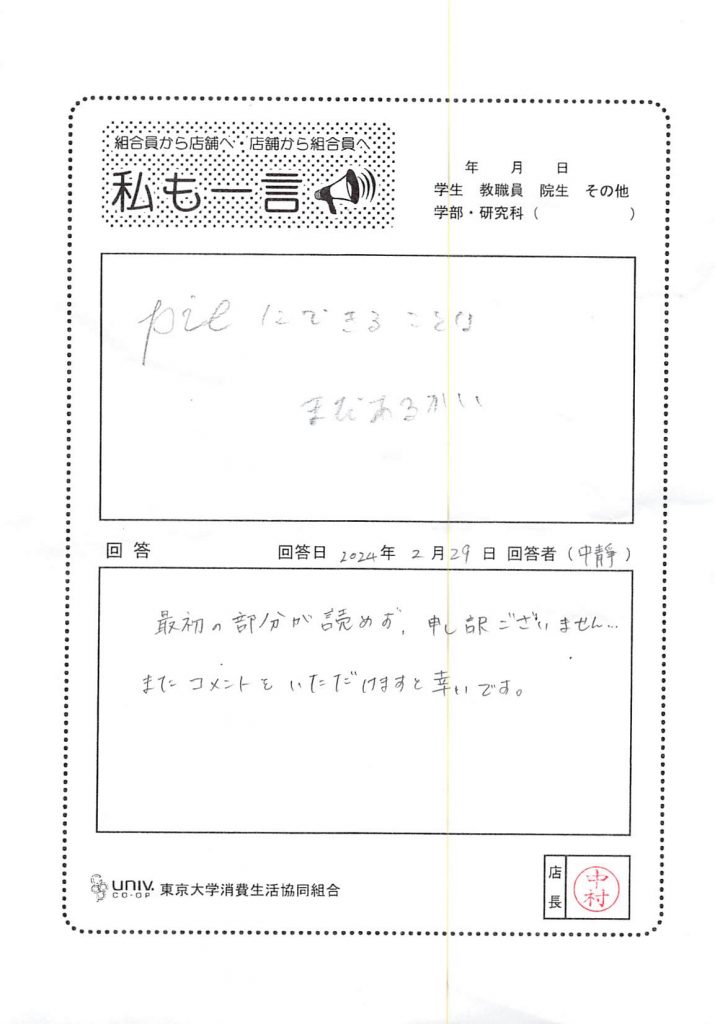 組合員から店舗へ・店舗から組合員へ
私も一言
年 月 日
学生 教職員 院生 その他
学部・研究科( )
pieにできることは
まだあるかい
回答 回答日 2024年 2月29日 回答者(中静)
最初の部分が読めず、申し訳ございません…
またコメントをいただけますと幸いです。
UNIV. CO-OP 東京大学消費生活協同組合
店長 中村